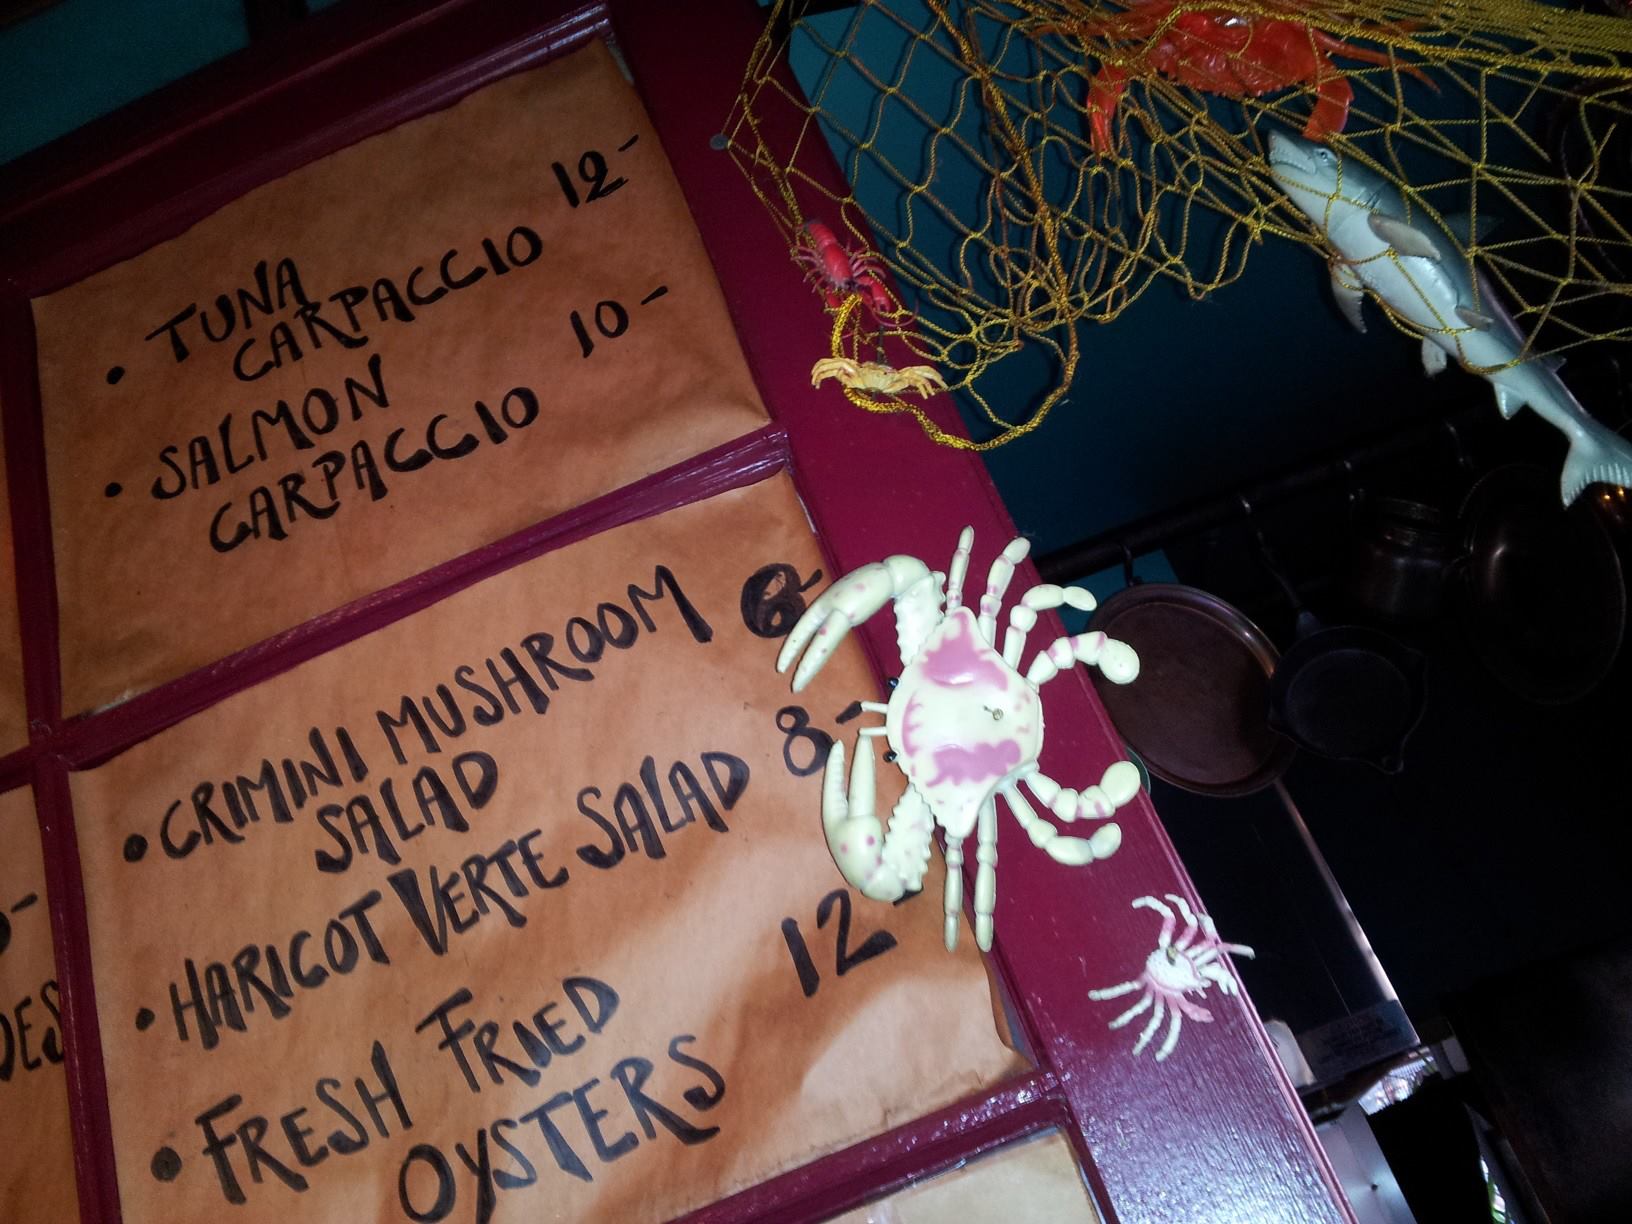 • TUNA CARPACCIO 12-
• SALMON CARPACCIO 10-
• CRIMINI MUSHROOM SALAD
• HARICOT VERTE SALAD 8-
• FRESH FRIED OYSTERS 12-